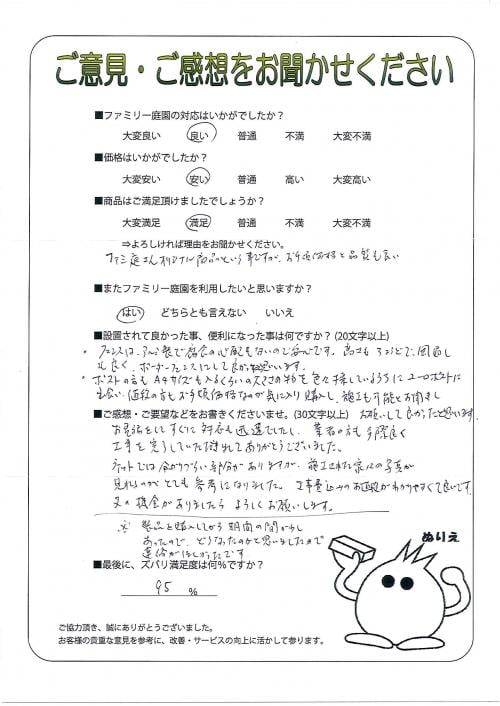 ご意見・ご感想をお聞かせください
■ファミリー庭園の対応はいかがでしたか？
大変良い 良い 普通 不満 大変不満
■価格はいかがでしたか？
大変安い 安い 普通 高い 大変高い
■商品はご満足頂けましたでしょうか？
大変満足 満足 普通 不満 大変不満
⇒よろしければ理由をお聞かせください。
ファミ庭さんオリジナル商品という事ですが、お手頃価格と品質も良い
■またファミリー庭園を利用したいと思いますか？
はい どちらとも言えない いいえ
■設置されて良かった事、便利になった事は何ですか？(20文字以上)
・フェンスは、アルミ製で腐食の心配もないので安心です。高さもちょうどで、風通し
も良く、ボーダーフェンスにして良かったと思います。
・ポストの方も A4サイズも入るくらいの大きさの物を色々探しているうちにユーロポストに
出会い、値段の方もお手頃価格なのが気に入り購入し、施工も可能とお聞きし
お願いして良かったと思います。
■ご感想・ご要望などをお書きくださいませ。(30文字以上)
お電話をしてすぐに対応も迅速でしたし、業者の方も手際良く
工事を完了していただきましてありがとうございました。
ネットでは分かりづらい部分がありますが、施工された家の写真が
見れるのがとても参考になりました。工事費込みのお値段がわかりやすくて良いです。
又の機会がありましたらよろしくお願いします。
※ 製品を購入してから期間の間が少し
あったので、どうなったのかと思いましたので
連絡がほしかったです
■最後に、ズバリ満足度は何％ですか？
95 %
ぬりえ
ご協力頂き、誠にありがとうございました。
お客様の貴重な意見を参考に、改善・サービスの向上に活かして参ります。